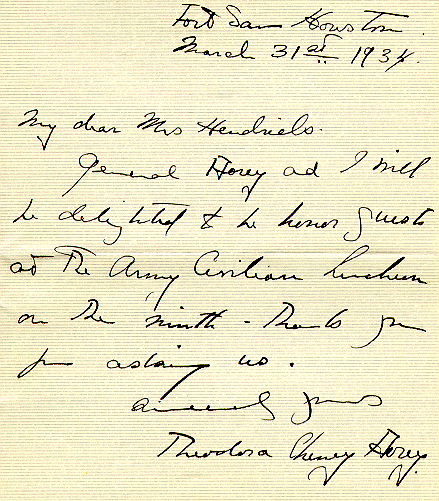 Fort Sam Houston.
March 31st 1934.
My dear Mrs Hendricks.
General Hovey and I will
be delighted to be honor guests
at the Army Civilian luncheon
on the ninth - Thanks you
for asking us.
Sincerely yours
Theodora Cheney Hovey.